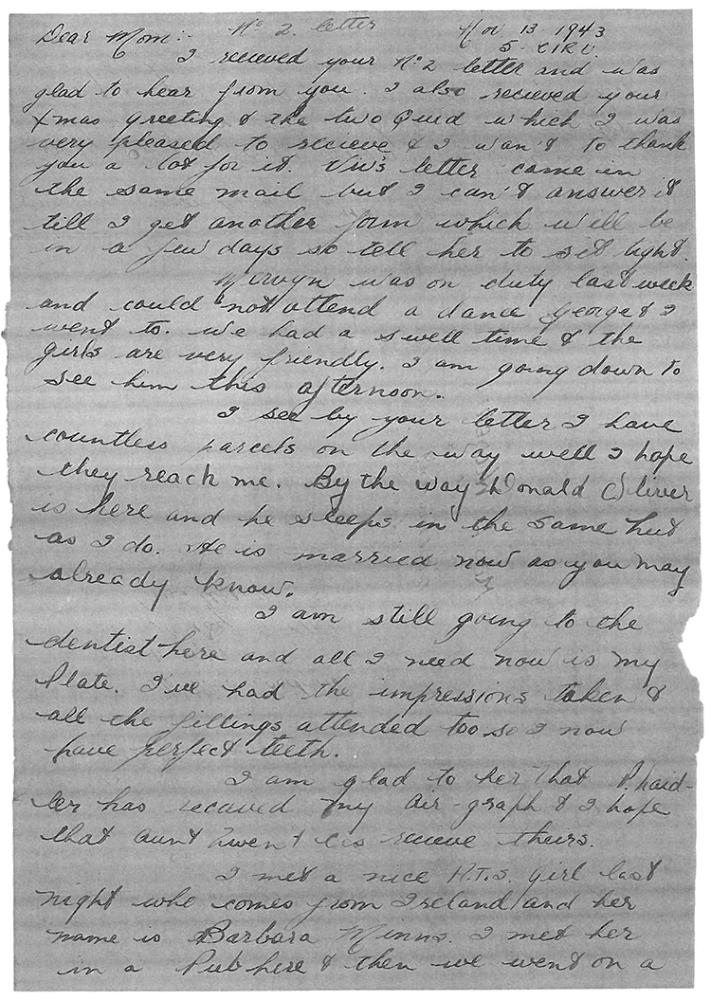 Dear Mom:- No 2. letter Nov 13 1943
5 CIRU
I recieved your No 2 letter and was
glad to hear from you. I also recieved your
Xmas greeting & the two Quid which I was
very pleased to recieve & I wan't to thank
you a lot for it. Viv's letter came in
the same mail but I can't answer it
till I get another form which will be
in a few days so tell her to sit tight.
Mervyn was on duty last week
and could not attend a dance George & I
went to. We had a swell time & the
girls are very friendly. I am going down to
see him this afternoon.
I see by your letter I have
countless parcels on the way well I hope
they reach me. By the way Donald Oliver
is here and he sleeps in the same hut
as I do. He is married now as you may
already know.
I am still going to the
dentist here and all I need now is my
Plate. I've had the impressions taken &
all the fillings attended too so I now
have perfect teeth.
I am glad to her that P.
has recieved my air-graph & I hope
that aunt recieve theirs.
I met a nice A.T.S. girl last
night who comes from Ireland and her
name is Barbara Minns. I met her
in a Pub here & then we went on a